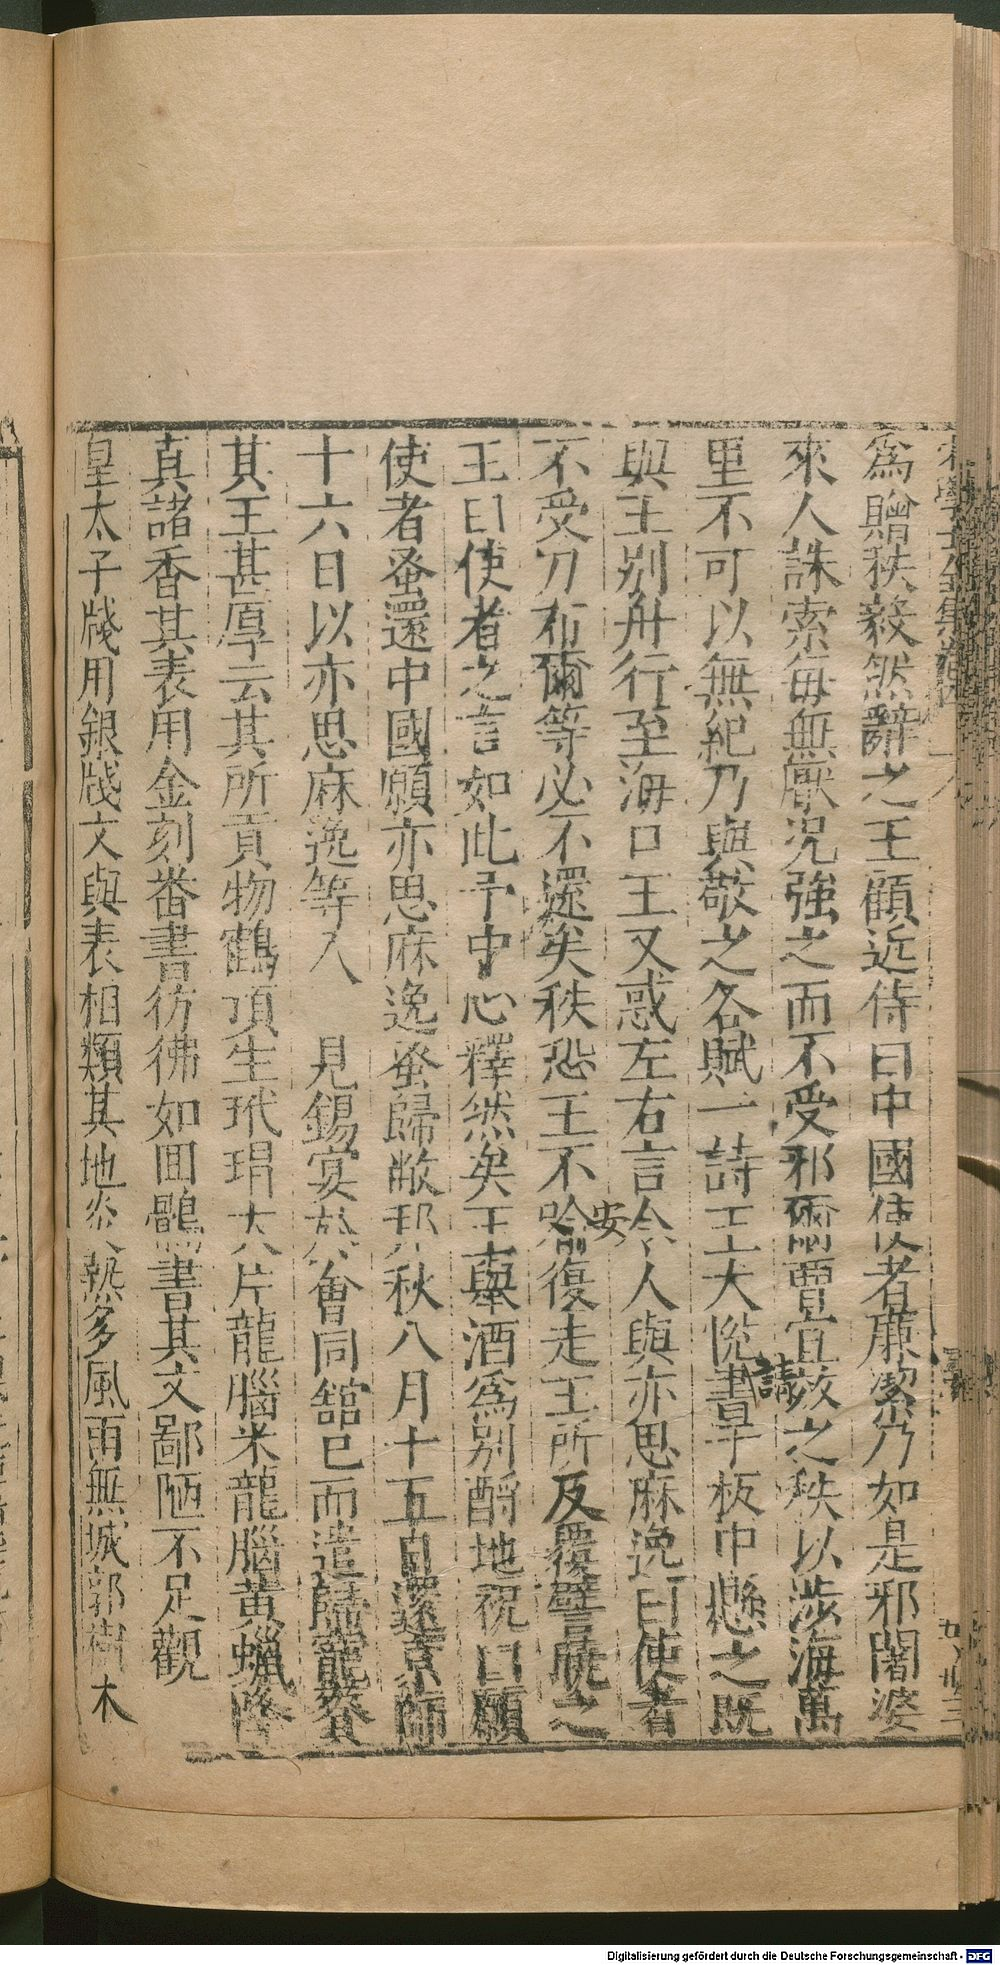 爲贈秩毅然辭之王顧近侍曰中國使者廉潔乃如是邪闍婆
來人誅索每無厭況強之而不受邪爾曹宜效之秩以涉海萬
里不可以無紀乃與敬之各賦一詩王大悅書于板中懸之既
請
與王別舟行至海口王又惑左右言令人與亦思麻逸曰使者
安
不受刀布爾等必不還矣秩恐王不喻復走王所反覆譬曉之
王曰使者之言如此予中心釋然矣王舉酒爲別酹地祝曰願
使者蚤還中國願亦思麻逸蚤歸敝邦秋八月十五自還京師
十六日以亦思麻逸等入 見錫宴於會同舘已而遣歸寵賚
其王甚厚云其所貢物鶴頂生玳瑁大片龍腦米龍腦黄蠟降
真諸香其表用金刻番書彷彿如囬鶻書其文鄙陋不足觀
皇太子牋用銀牋文與表相類其地炎熱多風雨無城郭樹木
Digitalisierung gefördert durch die Deutsche Forschungsgemeinschaft - DFG